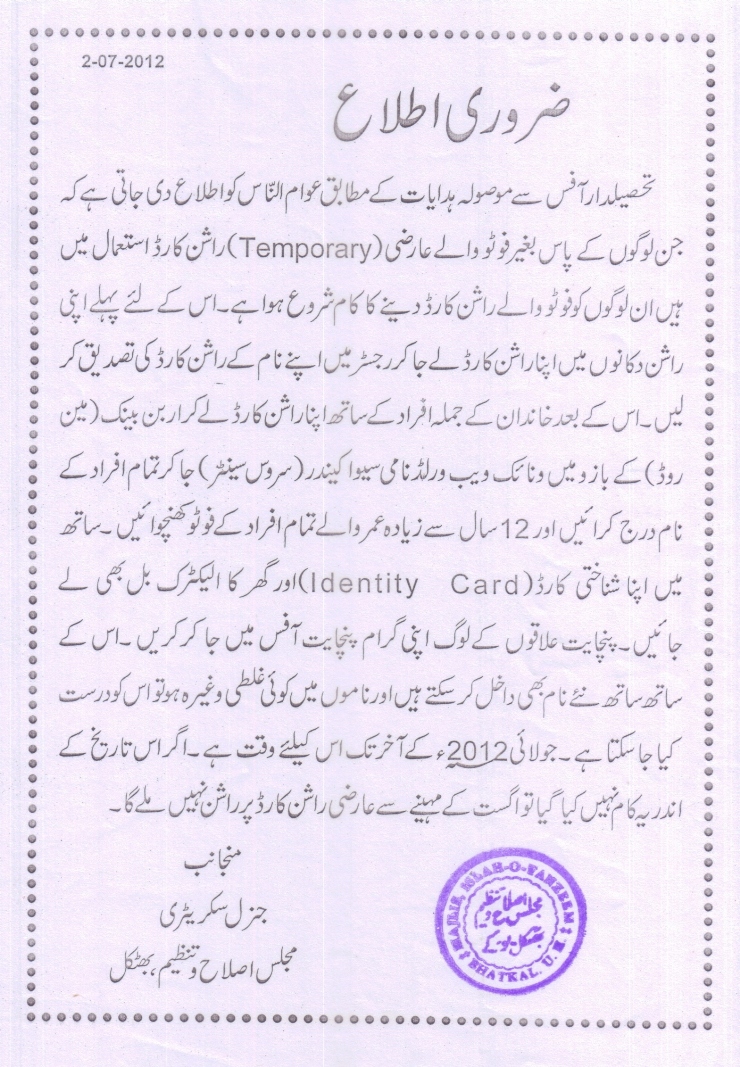 2-07-2012
ضروری اطلاع
تحصیلدار آفس سے موصولہ ہدایات کے مطابق عوام النّاس کو اطلاع دی جاتی ہے کہ
جن لوگوں کے پاس بغیر فوٹو والے عارضی (Temporary) راشن کارڈ استعمال میں
ہیں ان لوگوں کو فوٹو والے راشن کارڈ دینے کا کام شروع ہوا ہے۔ اس کے لئے پہلے اپنی
راشن دکانوں میں اپنا راشن کارڈ لے جا کر رجسٹر میں اپنے نام کے راشن کارڈ کی تصدیق کر
لیں۔ اس کے بعد خاندان کے جملہ افراد کے ساتھ اپنا راشن کارڈ لے کر اربن بینک (مین
روڈ) کے بازو میں ونائک ویب ورلڈ نامی سیوا کیندر (سروس سینٹر) جا کر تمام افراد کے
نام درج کرائیں اور 12 سال سے زیادہ عمر والے تمام افراد کے فوٹو کھنچوائیں۔ ساتھ
میں اپنا شناختی کارڈ (Identity Card) اور گھر کا الیکٹرک بل بھی لے
جائیں۔ پنچایت علاقوں کے لوگ اپنی گرام پنچایت آفس میں جا کر کریں۔ اس کے
ساتھ ساتھ نئے نام بھی داخل کر سکتے ہیں اور ناموں میں کوئی غلطی وغیرہ ہو تو اس کو درست
کیا جا سکتا ہے۔ جولائی 2012ء کے آخر تک اس کیلئے وقت ہے۔ اگر اس تاریخ کے
اندر یہ کام نہیں کیا گیا تو اگست کے مہینے سے عارضی راشن کارڈ پر راشن نہیں ملے گا۔
منجانب
جنرل سکریٹری
مجلس اصلاح و تنظیم، بھٹکل
MAJLIS ISLAH-O-TANZEEM
مجلس اصلاح و تنظیم
بھٹکل
BHATKAL, U. K.